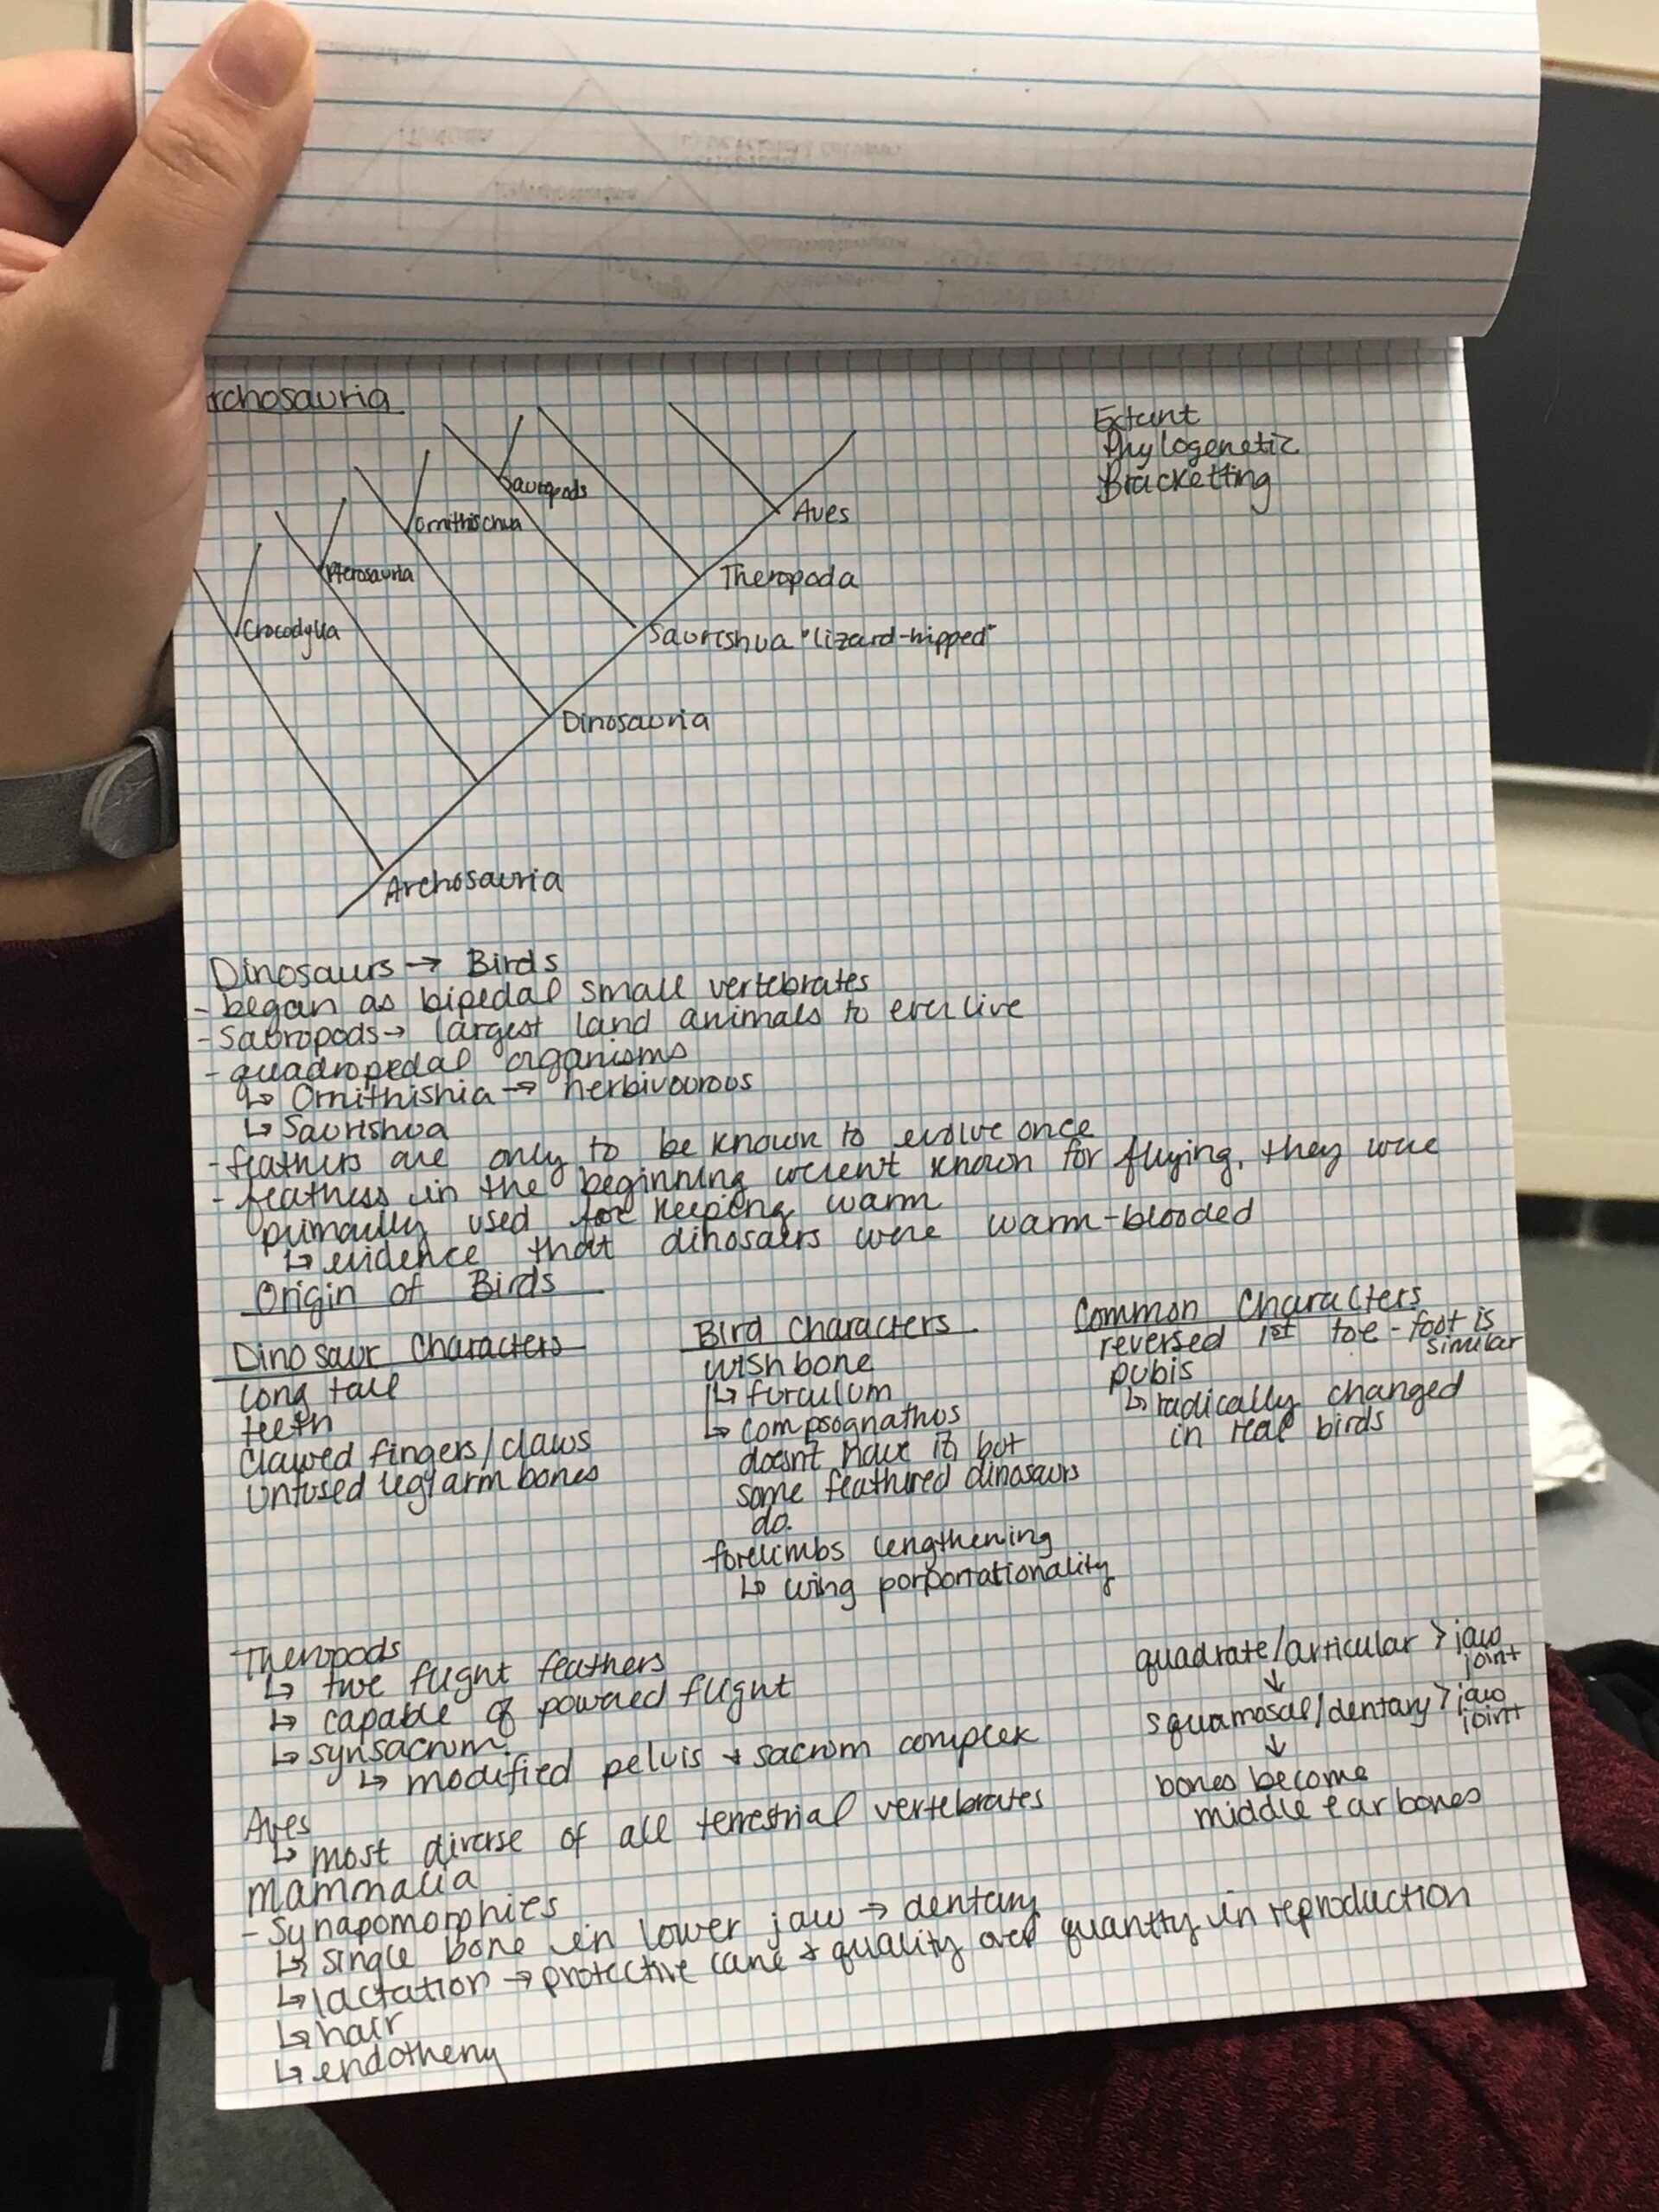 rchosauria
Extant
Phylogenetic
Bracketting
Sauropods
Ornithischia
Aves
Pterosauria
Theropoda
Crocodylia
Saurishua "lizard-hipped"
Dinosauria
Archosauria
Dinosaurs → Birds
- began as bipedal small vertebrates
- Sauropods → largest land animals to ever live
- quadropedal organisms
↳ Ornithishia → herbivourous
↳ Saurishua
- feathers are only to be known to evolve once
- feathers in the beginning weren't known for flying, they were
primarily used for keeping warm
↳ evidence that dinosaurs were warm-blooded
Origin of Birds
Dinosaur Characters
long tail
teeth
clawed fingers/claws
unfused leg/arm bones
Bird Characters
wishbone
↳ furculum
↳ compsognathus
doesn't have it but
some feathered dinosaurs
do.
forelimbs lengthening
↳ wing porportationality
Common Characters
reversed 1st toe - foot is
similar
pubis
↳ radically changed
in real birds
Theropods
↳ true flight feathers
↳ capable of powered flight
↳ synsacrum
↳ modified pelvis + sacrum complex
quadrate/articular > jaw
joint
↓
squamosal/dentary > jaw
joint
↓
bones become
middle ear bones
Aves
↳ most diverse of all terrestrial vertebrates
Mammalia
- Synapomorphies
↳ single bone in lower jaw → dentary
↳ lactation → protective care + quality over quantity in reproduction
↳ hair
↳ endothemy